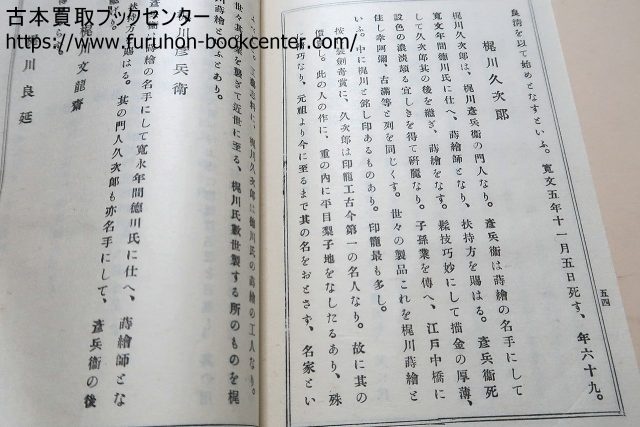 古本買取ブックセンター
https://www.furuhon-bookcenter.com/
五四
良濤を以て始めとなすといふ。寛文五年十一月五日死す、年六十九。
梶川久次郎
梶川久次郎は、梶川彦兵衞の門人なり。彦兵衞は蒔繪の名手にして
寛文年間德川氏に仕へ、蒔繪師となり、扶持方を賜はる。彦兵衞死
して久次郎其の後を繼ぎ、蒔繪をなす。髹技巧妙にして描金の厚薄、
設色の濃淡頗る宜しきを得て硏麗なり。子孫業を傳へ、江戸中橋に
住し幸阿彌、古滿等と列を同じくす。世々の製品これを梶川蒔繪と
いふ。中に梶川と銘し印あるものあり。印籠最も多し。
裝劍奇賞に、久次郎は印籠工古今第一の名人なり。故に其の
價し。此の人の作に、重の内に平目梨子地をなしたるあり、殊
巧なり、元祖より今に至るまで其の名をおとさず、名家とい
料に、梶川久次郎は德川氏の蒔繪の工人なり。
世々其業を繼ぎて近世に至る、梶川氏數世製する所のものを梶
川蒔繪といふとあり。
川彦兵衞
衞は蒔繪の名手にして寛永年間德川氏に仕へ、蒔繪師とな
扶持方を賜はる。其の門人久次郎も亦名手にして、彦兵衞の後
梶文龍齋
川良延